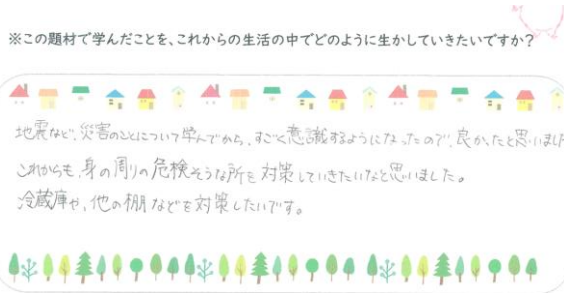 ※この題材で学んだことを、これからの生活の中でどのように生かしていきたいですか?
地震など、災害のことについて学んでから、すごく意識するようになったので、良かったと思いまし
これからも、身の周りの危検そうな所を対策していきたいなと思いました。
冷蔵庫や、他の棚などを対策したいです。